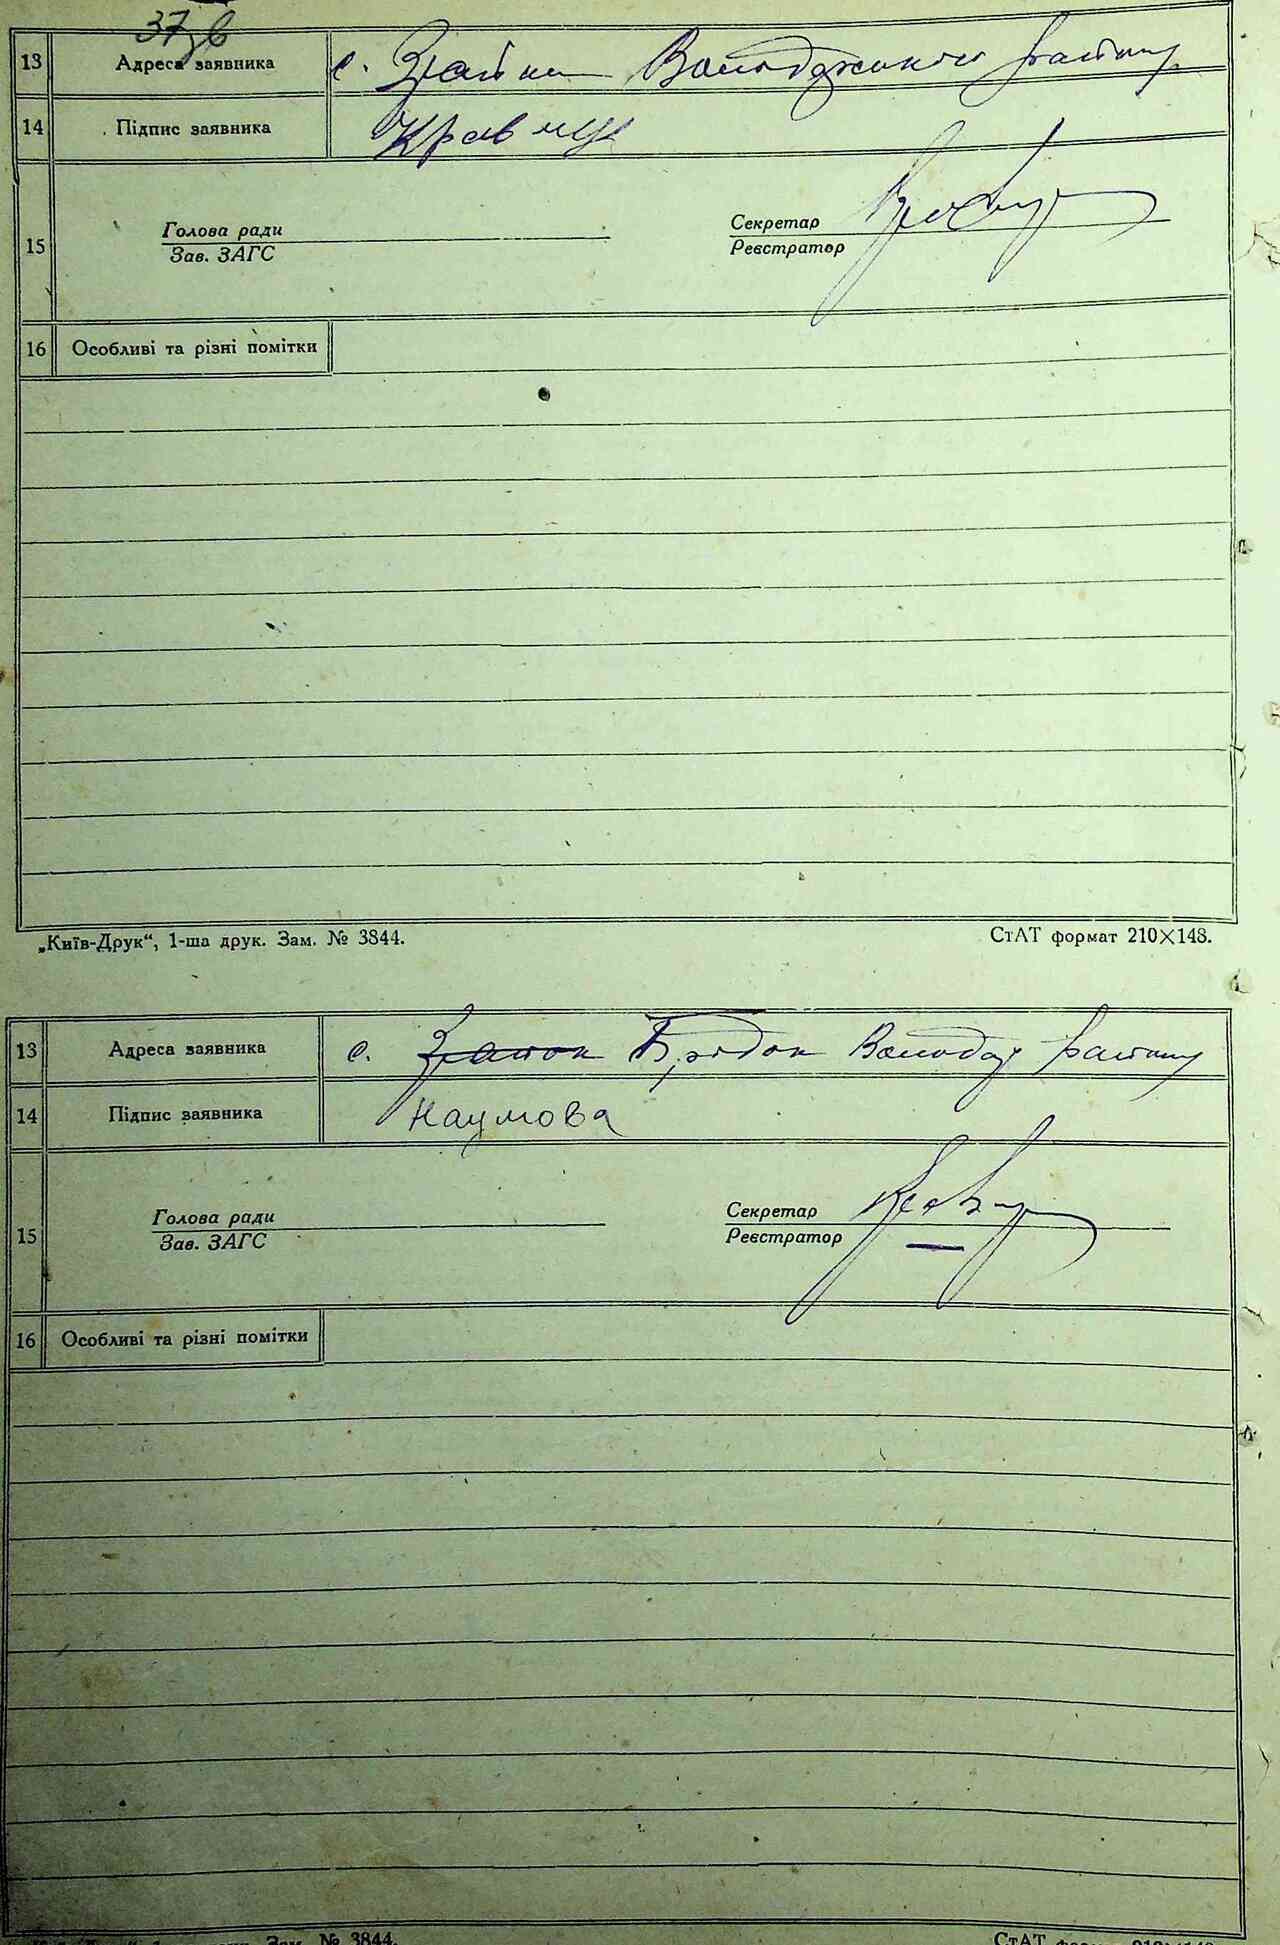 37зв
13 Адреса заявника с. Володарського району
14 Підпис заявника Кравець
15 Голова ради Секретар
Зав. ЗАГС Реєстратор
16 Особливі та різні помітки
„Київ-Друк“, 1-ша друк. Зам. № 3844. СтАТ формат 210×148.
13 Адреса заявника с. Володар району
14 Підпис заявника Наумова
15 Голова ради Секретар
Зав. ЗАГС Реєстратор
16 Особливі та різні помітки
Зам. № 3844. СтАТ